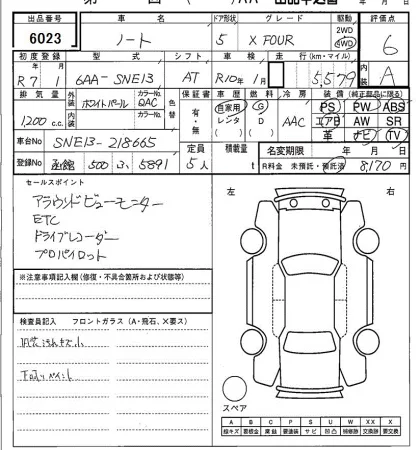 出品番号 車名 ドア形状 グレード 駆動 評価点
6023 ノート 5 X FOUR 2WD 4WD 6
初度登録 型式 シフト 車検 走行(km・マイル) 内装
R7 1 6AA-SNE13 AT R10年1月 5,579 A
排気量 外装 カラーNo. 色替 保証書 車歴 燃料 冷房 装備(純正部品に○)
1200 c.c. ホワイトパール QAC 有・無 自家用 レンタ G D AAC PS PW ABS
内装 カラーNo. エアB AW SR
車台No SNE13-218665 革 ナビ TV
登録No 函館 500 5891 定員 5人 積載量 t 名変期限 年 月 日
R料金 未預託・預託済 8,170円
セールスポイント
アラウンドビューモニター
ETC
ドライブレコーダー
プロパイロット
左 右
※注意事項記入欄(修復・不具合箇所および状態等)
検査員記入 フロントガラス(A・飛石、X要ス)
内装汚れキズ小
下回りペイント
スペア
A B C P S U W X XX
線キズ 要板金 腐蝕 要塗装 サビ 凹凸 補修跡 要交換 交換済